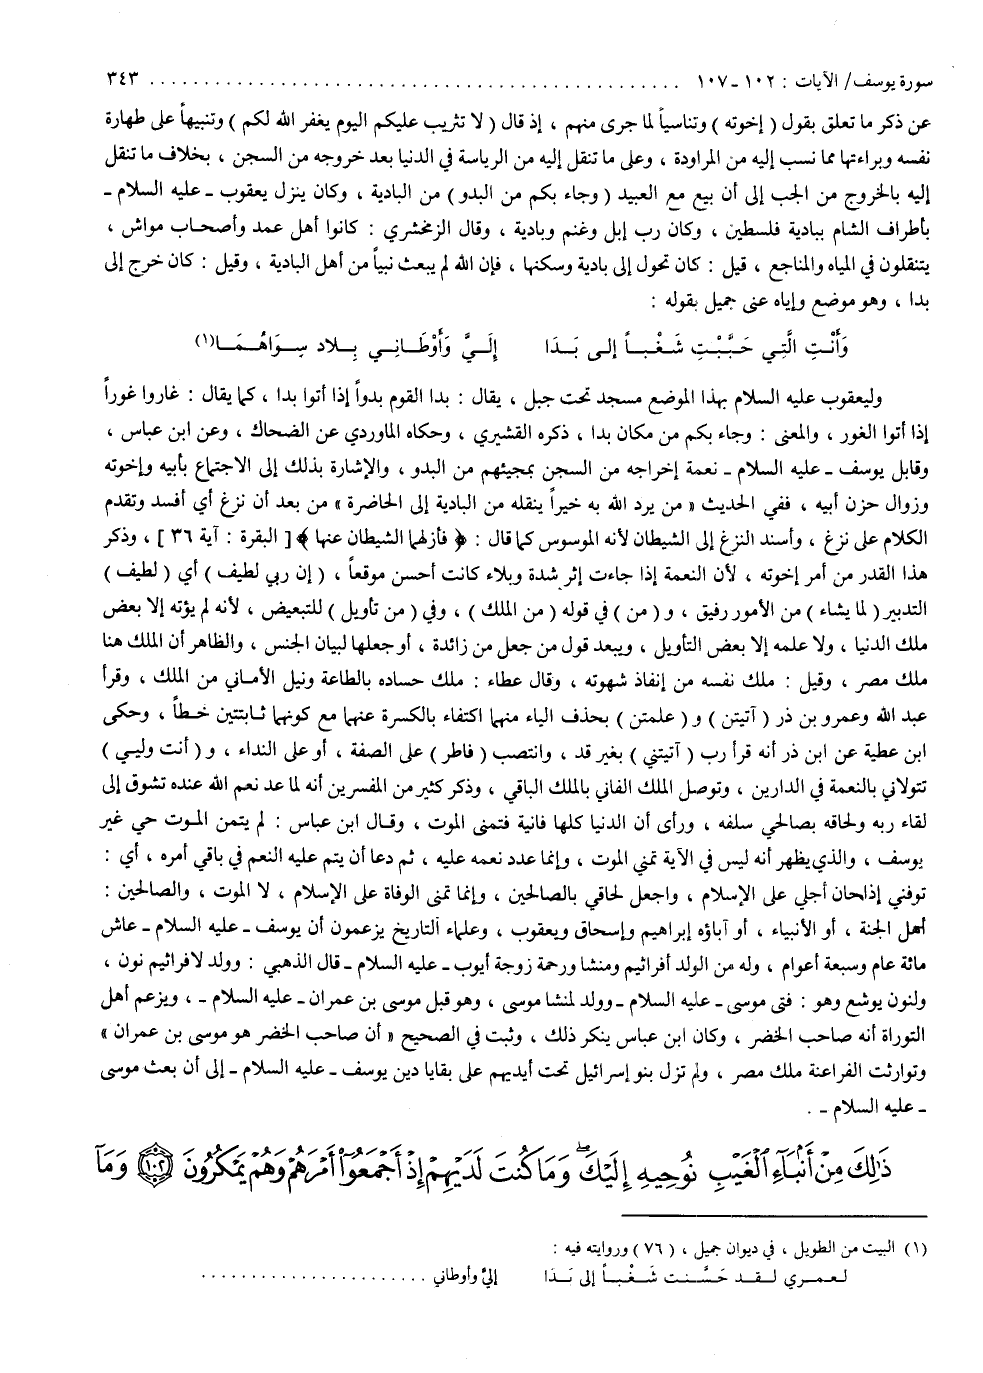 سورة يوسف/ الآيات : ١٠٢ ـ ١٠٧ ................................................ ٣٤٣
عن ذكر ما تعلق بقول ( إخوته ) وتناسياً لما جرى منهم ، إذ قال ( لا تثريب عليكم اليوم يغفر الله لكم ) وتنبيهاً على طهارة
نفسه وبراءتها مما نسب إليه من المراودة ، وعلى ما تنقل إليه من الرياسة في الدنيا بعد خروجه من السجن ، بخلاف ما تنقل
إليه بالخروج من الجب إلى أن بيع مع العبيد ( وجاء بكم من البدو ) من البادية ، وكان ينزل يعقوب ـ عليه السلام ـ
بأطراف الشام ببادية فلسطين ، وكان رب إبل وغنم وبادية ، وقال الزمخشري : كانوا أهل عمد وأصحاب مواش ،
يتنقلون في المياه والمناجع ، قيل : كان تحول إلى بادية وسكنها ، فإن الله لم يبعث نبياً من أهل البادية ، وقيل : كان خرج إلى
بدا ، وهو موضع وإياه عنى جميل بقوله :
وَأَنْتِ الَّتِي حَبَّبْتِ شَغْبـاً إلى بَـدَا إِلَيَّ وَأَوْطَـانِـي بِـلاد سِـوَاهُـمَـا(١)
وليعقوب عليه السلام بهذا الموضع مسجد تحت جبل ، يقال : بدا القوم بدواً إذا أتوا بدا ، كما يقال : غاروا غوراً
إذا أتوا الغور ، والمعنى : وجاء بكم من مكان بدا ، ذكره القشيري ، وحكاه الماوردي عن الضحاك ، وعن ابن عباس ،
وقابل يوسف ـ عليه السلام ـ نعمة إخراجه من السجن بمجيئهم من البدو ، والإشارة بذلك إلى الاجتماع بأبيه وإخوته
وزوال حزن أبيه ، ففي الحديث « من يرد الله به خيراً ينقله من البادية إلى الحاضرة » من بعد أن نزغ أي أفسد وتقدم
الكلام على نزغ ، وأسند النزغ إلى الشيطان لأنه الموسوس كما قال : ﴿ فأزلهما الشيطان عنها ﴾ [ البقرة : آية ٣٦ ] ، وذكر
هذا القدر من أمر إخوته ، لأن النعمة إذا جاءت إثر شدة وبلاء كانت أحسن موقعاً ، ( إن ربي لطيف ) أي ( لطيف )
التدبير ( لما يشاء ) من الأمور رفيق ، و ( من ) في قوله ( من الملك ) ، وفي ( من تأويل ) للتبعيض ، لأنه لم يؤته إلا بعض
ملك الدنيا ، ولا علمه إلا بعض التأويل ، ويبعد قول من جعل من زائدة ، أو جعلها لبيان الجنس ، والظاهر أن الملك هنا
ملك مصر ، وقيل : ملك نفسه من إنفاذ شهوته ، وقال عطاء : ملك حساده بالطاعة ونيل الأماني من الملك ، وقرأ
عبد الله وعمرو بن ذر ( آتيتن ) و ( علمتن ) بحذف الياء منهما اكتفاء بالكسرة عنهما مع كونهما ثابتتين خطاً ، وحكى
ابن عطية عن ابن ذر أنه قرأ رب ( آتيتني ) بغير قد ، وانتصب ( فاطر ) على الصفة ، أو على النداء ، و ( أنت وليي )
تتولاني بالنعمة في الدارين ، وتوصل الملك الفاني بالملك الباقي ، وذكر كثير من المفسرين أنه لما عد نعم الله عنده تشوق إلى
لقاء ربه ولحاقه بصالحي سلفه ، ورأى أن الدنيا كلها فانية فتمنى الموت ، وقال ابن عباس : لم يتمن الموت حي غير
يوسف ، والذي يظهر أنه ليس في الآية تمني الموت ، وإنما عدد نعمه عليه ، ثم دعا أن يتم عليه النعم في باقي أمره ، أي :
توفني إذا حان أجلي على الإسلام ، واجعل لحاقي بالصالحين ، وإنما تمنى الوفاة على الإسلام ، لا الموت ، والصالحين :
أهل الجنة ، أو الأنبياء ، أو آباؤه إبراهيم وإسحاق ويعقوب ، وعلماء التاريخ يزعمون أن يوسف ـ عليه السلام ـ عاش
مائة عام وسبعة أعوام ، وله من الولد أفراثيم ومنشا ورحمة زوجة أيوب ـ عليه السلام ـ قال الذهبي : وولد لافراثيم نون ،
ولنون يوشع وهو : فتى موسى ـ عليه السلام ـ وولد لمنشا موسى ، وهو قبل موسى بن عمران ـ عليه السلام ـ ، ويزعم أهل
التوراة أنه صاحب الخضر ، وكان ابن عباس ينكر ذلك ، وثبت في الصحيح « أن صاحب الخضر هو موسى بن عمران »
وتوارثت الفراعنة ملك مصر ، ولم تزل بنو إسرائيل تحت أيديهم على بقايا دين يوسف ـ عليه السلام ـ إلى أن بعث موسى
ـ عليه السلام ـ .
ذَٰلِكَ مِنْ أَنۢبَآءِ ٱلْغَيْبِ نُوحِيهِ إِلَيْكَ ۖ وَمَا كُنتَ لَدَيْهِمْ إِذْ أَجْمَعُوٓا۟ أَمْرَهُمْ وَهُمْ يَمْكُرُونَ ﴿١٠٢﴾ وَمَآ
(١) البيت من الطويل ، في ديوان جميل ، ( ٧٦ ) وروايته فيه :
لعمـري لـقـد حَسَّـنـت شَغْبـاً إلى بَـدَا إليَّ وأوطاني .......................